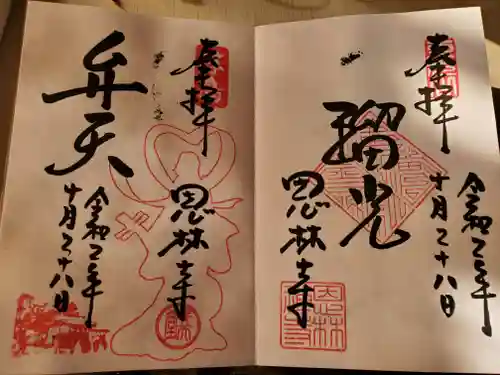 奉拝
瑠光
恩林寺
令和二年
十月二十八日
奉拝
弁天
恩林寺
令和二年
十月二十八日